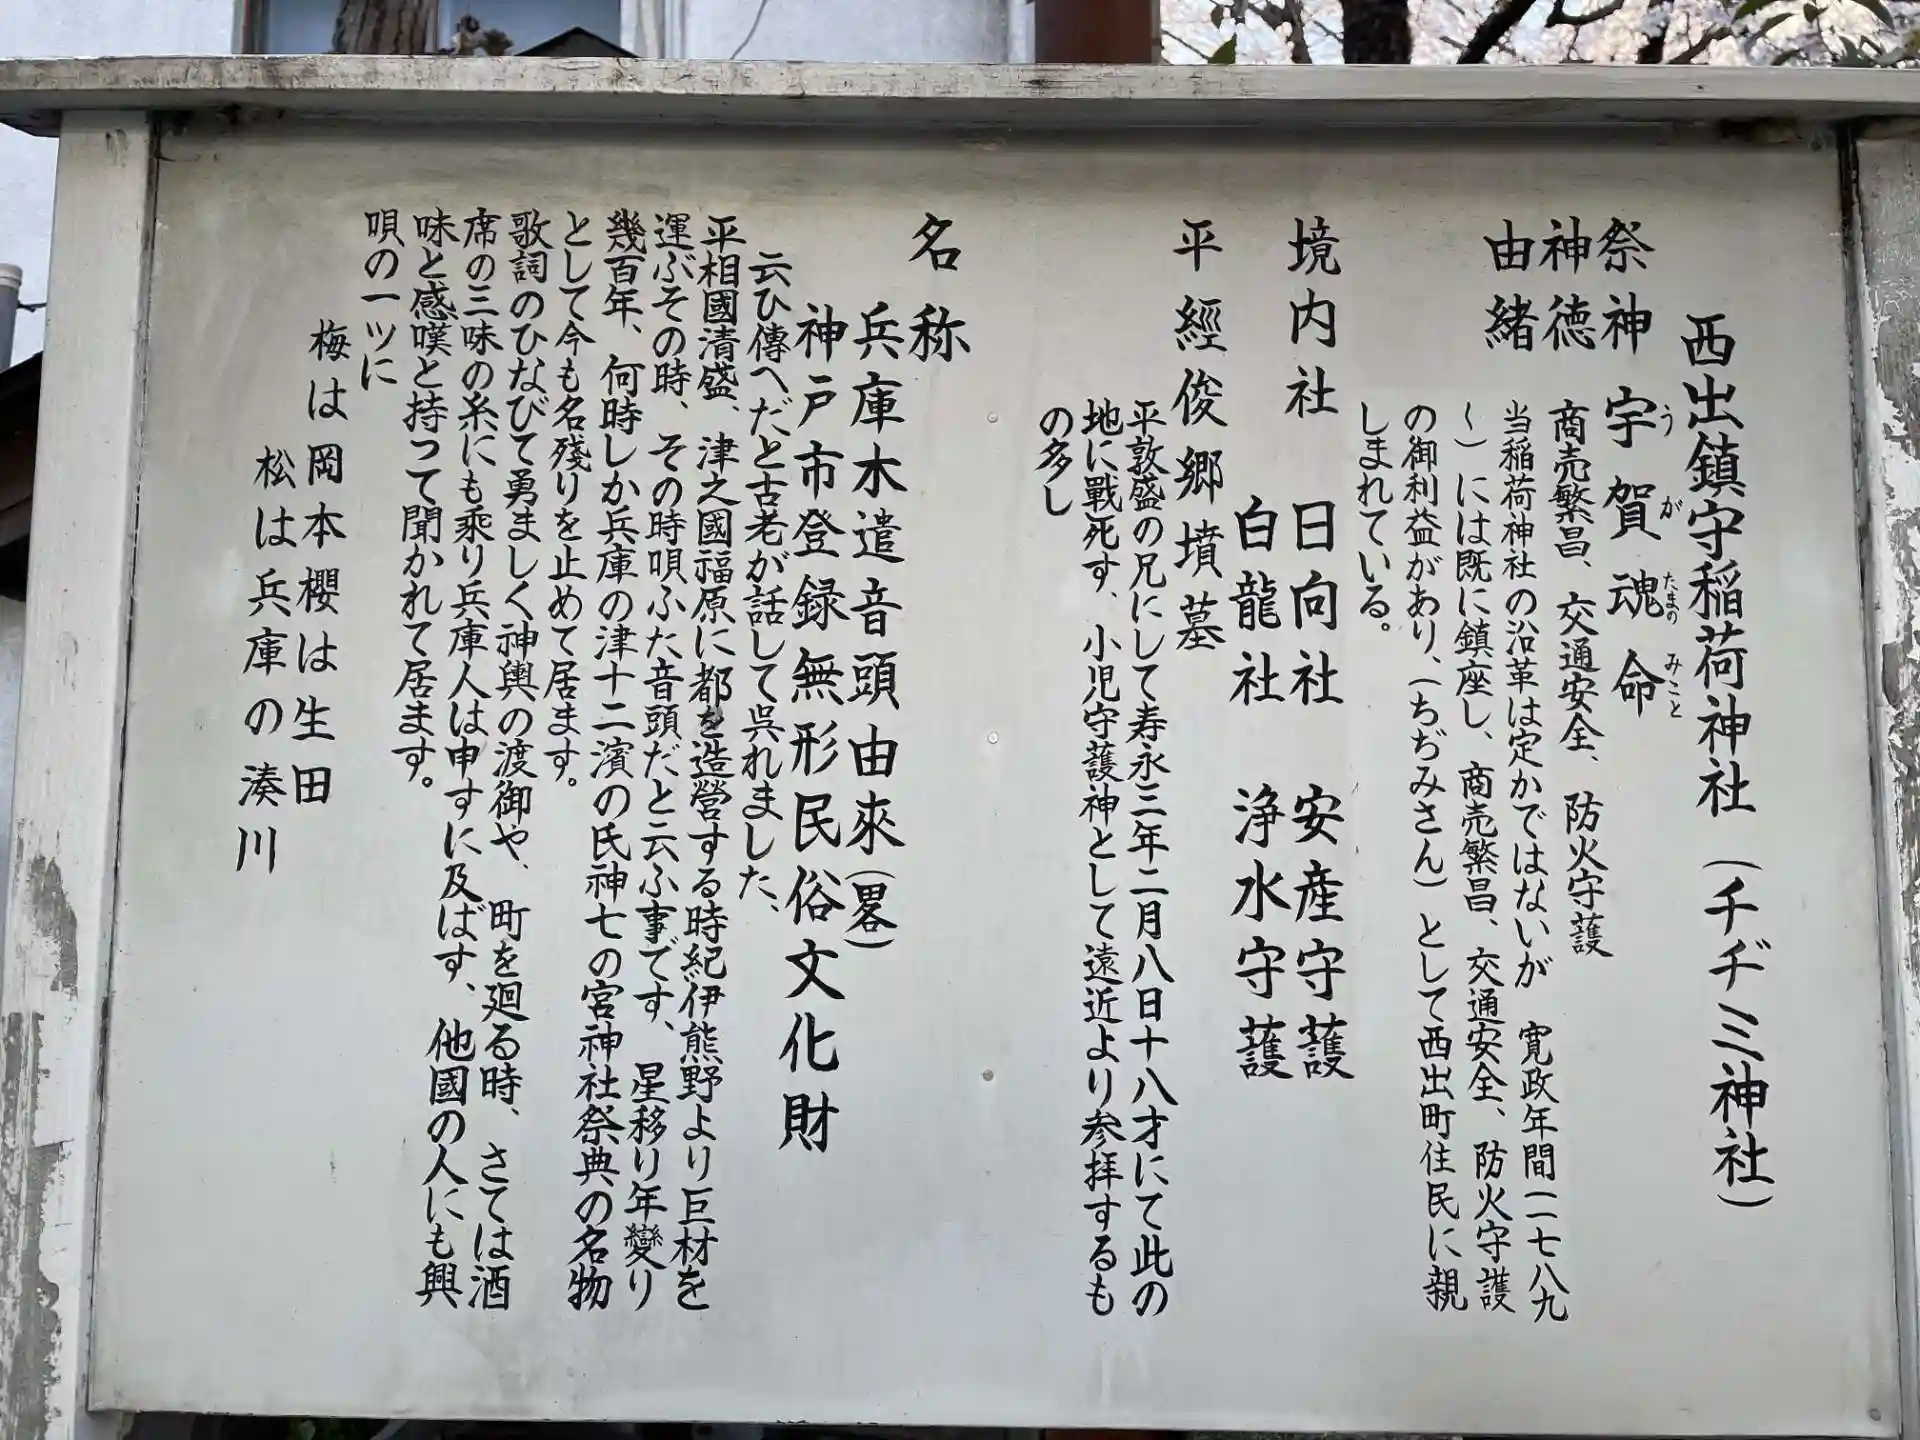 西出鎮守稲荷神社(チヂミ神社)
祭神 宇賀魂命
うがたまのみこと
神徳 商売繁昌、交通安全、防火守護
由緒 当稲荷神社の沿革は定かではないが 寛政年間(一七八九
〜)には既に鎮座し、商売繁昌、交通安全、防火守護
の御利益があり、(ちぢみさん)として西出町住民に親
しまれている。
境内社 日向社 安産守護
白龍社 浄水守護
平經俊郷墳墓
平敦盛の兄にして寿永三年二月八日十八才にて此の
地に戰死す、小児守護神として遠近より参拝するも
の多し
名称
兵庫木遣音頭由來(畧)
神戸市登録無形民俗文化財
云ひ傳へだと古老が話して呉れました、
平相國清盛、津之國福原に都を造營する時紀伊熊野より巨材を
運ぶその時、その時唄ふた音頭だと云ふ事です、星移り年變り
幾百年、何時しか兵庫の津十二濱の氏神七の宮神社祭典の名物
として今も名殘りを止めて居ます。
歌詞のひなびて勇ましく神輿の渡御や、町を廻る時、さては酒
席の三味の糸にも乘り兵庫人は申すに及ばす、他國の人にも興
味と感嘆と持って聞かれて居ます。
唄の一ッに
梅は岡本櫻は生田
松は兵庫の湊川